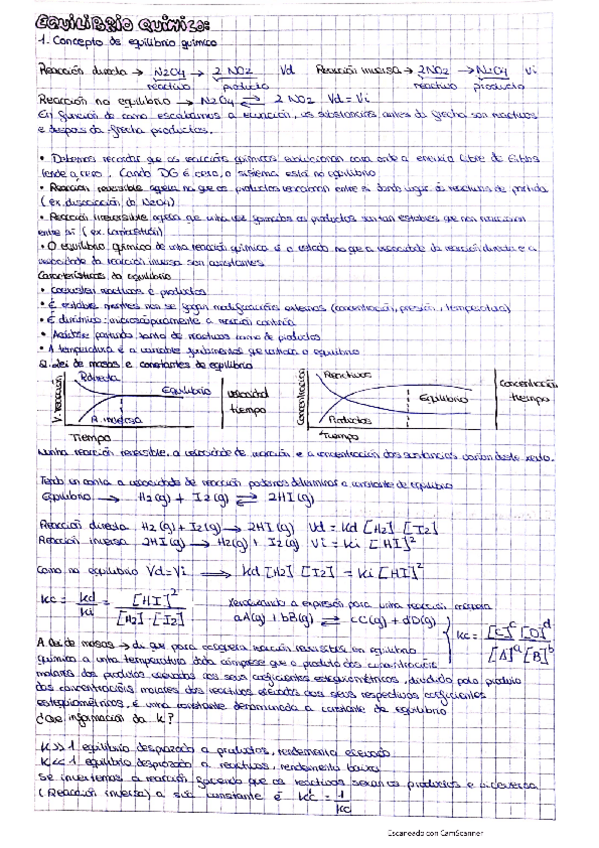 EQUILIBRIO QUÍMICO:
1. Concepto de equilibrio químico
Reacción directa → N2O4 → 2 NO2 Vd Reacción inversa → 2NO2 → N2O4 Vi
reactivo producto reactivo producto
Reacción no equilibrio → N2O4 ⇄ 2 NO2 Vd = Vi
En función de como escribamos a ecuación, as substancias antes da frecha son reactivos
e despois da frecha productos.
• Debemos recordar que as reaccións químicas evolucionan cara onde a enerxía libre de Gibbs
tende a cero. Cando DG é cero, o sistema está no equilibrio
• Reacción reversible: aquela na que os productos reaccionan entre si dando lugar ós reactivos de partida
(ex. disociación do N2O4)
• Reacción irreversible: aquela que unha vez formados os productos son tan estables que non reaccionan
entre si (ex. combustión)
• O equilibrio químico de unha reacción química é o estado no que a velocidade da reacción directa e a
velocidade da reacción inversa son constantes
Características do equilibrio
• Coexisten reactivos e productos
• É estable mentres non se fagan modificacións externas (concentración, presión, temperatura)
• É dinámico: microscópicamente a reacción continúa
• partindo tanto de reactivos como de productos
• A temperatura é a variable fundamental que o equilibrio
2. Lei de masas e constantes de equilibrio
V. reacción R.directa Equilibrio R. inversa Tiempo
velocidad tiempo
Concentración Reactivos Equilibrio Productos Tiempo
Concentración tiempo
Nunha reacción reversible, a velocidade de reacción e a concentración das sustancias varían deste xeito.
Tendo en conta a velocidade de reacción podemos determinar a constante de equilibrio
Equilibrio → H2(g) + I2(g) ⇄ 2HI(g)
Reacción directa H2(g) + I2(g) → 2HI(g) Vd = Kd [H2] · [I2]
Reacción inversa 2HI(g) → H2(g) + I2(g) Vi = Ki [HI]²
Como no equilibrio Vd=Vi ⟹ Kd [H2] [I2] = Ki [HI]²
Kc = Kd/Ki = [HI]²/[H2]·[I2] Xeralizando a expresión para unha reacción calquera
aA(g) + bB(g) ⇄ cC(g) + dD(g) Kc = [C]^c [D]^d / [A]^a [B]^b
A Lei de masas → di que para calquera reacción reversible en equilibrio
químico a unha temperatura dada cúmprese que o producto das concentracións
molares dos productos elevados aos seus coeficientes estequiométricos, dividido polo producto
das concentracións molares dos reactivos elevados aos seus respectivos coeficientes
estequiométricos, é unha constante denominada a constante de equilibrio
¿Que información da K?
K >> 1 equilibrio desprazado a productos, rendemento elevado
K << 1 equilibrio desprazado a reactivos, rendemento baixo
Se invertemos a reacción facendo que os reactivos sexan os productos e viceversa
(Reacción inversa) a súa constante é K'c = 1/Kc
Escaneado con CamScanner